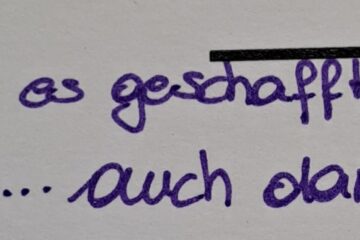 es geschafft
... auch dar